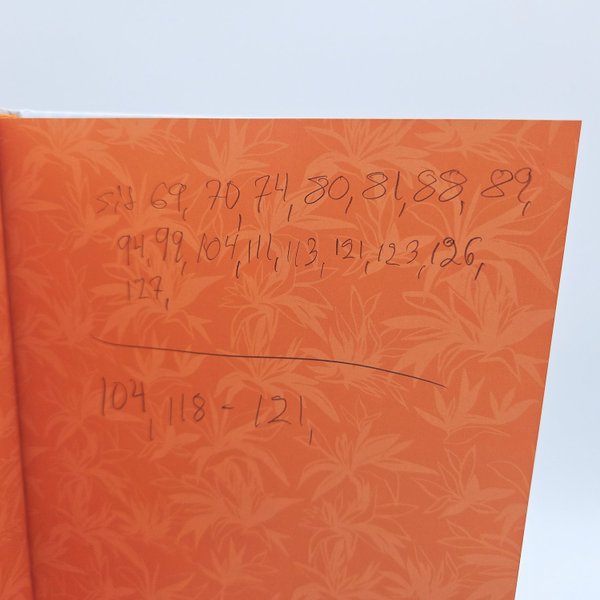 sid 69, 70, 74, 80, 81, 88, 89,
94, 99, 104, 111, 113, 121, 123, 126,
127,
104, 118 - 121,